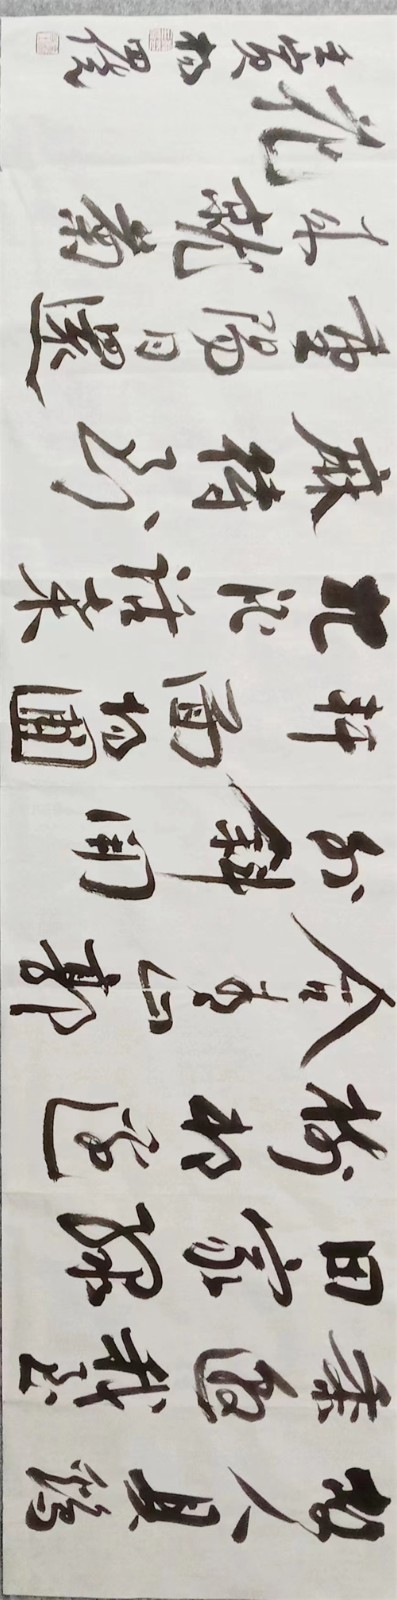 故人具鷄
黍邀我至
田家緑
樹村邊
合青山郭
外斜開
軒面場圃
把酒話桑
麻待到
重陽日還
来就菊
花
壬寅